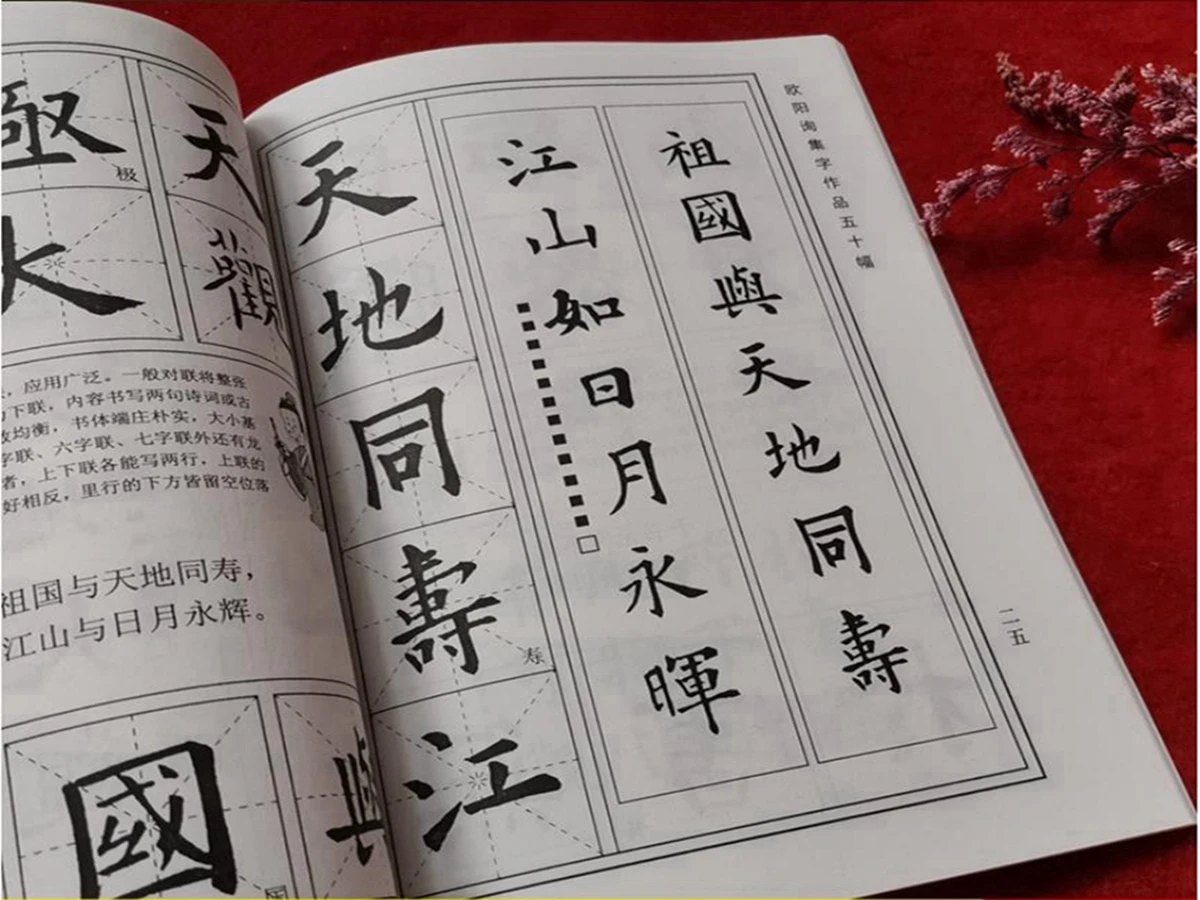 極
极
天
大
觀
，应用广泛。一般对联将整张
下联，内容书写两句诗词或古
均衡，书体端庄朴实，大小基
字联、六字联、七字联外还有龙
者，上下联各能写两行，上联的
好相反，里行的下方皆留空位落
祖国与天地同寿，
江山与日月永辉。
國
與
天
地
同
壽
寿
江
祖國與天地同壽
江山如日月永暉
欧阳询集字作品五十幅
二五